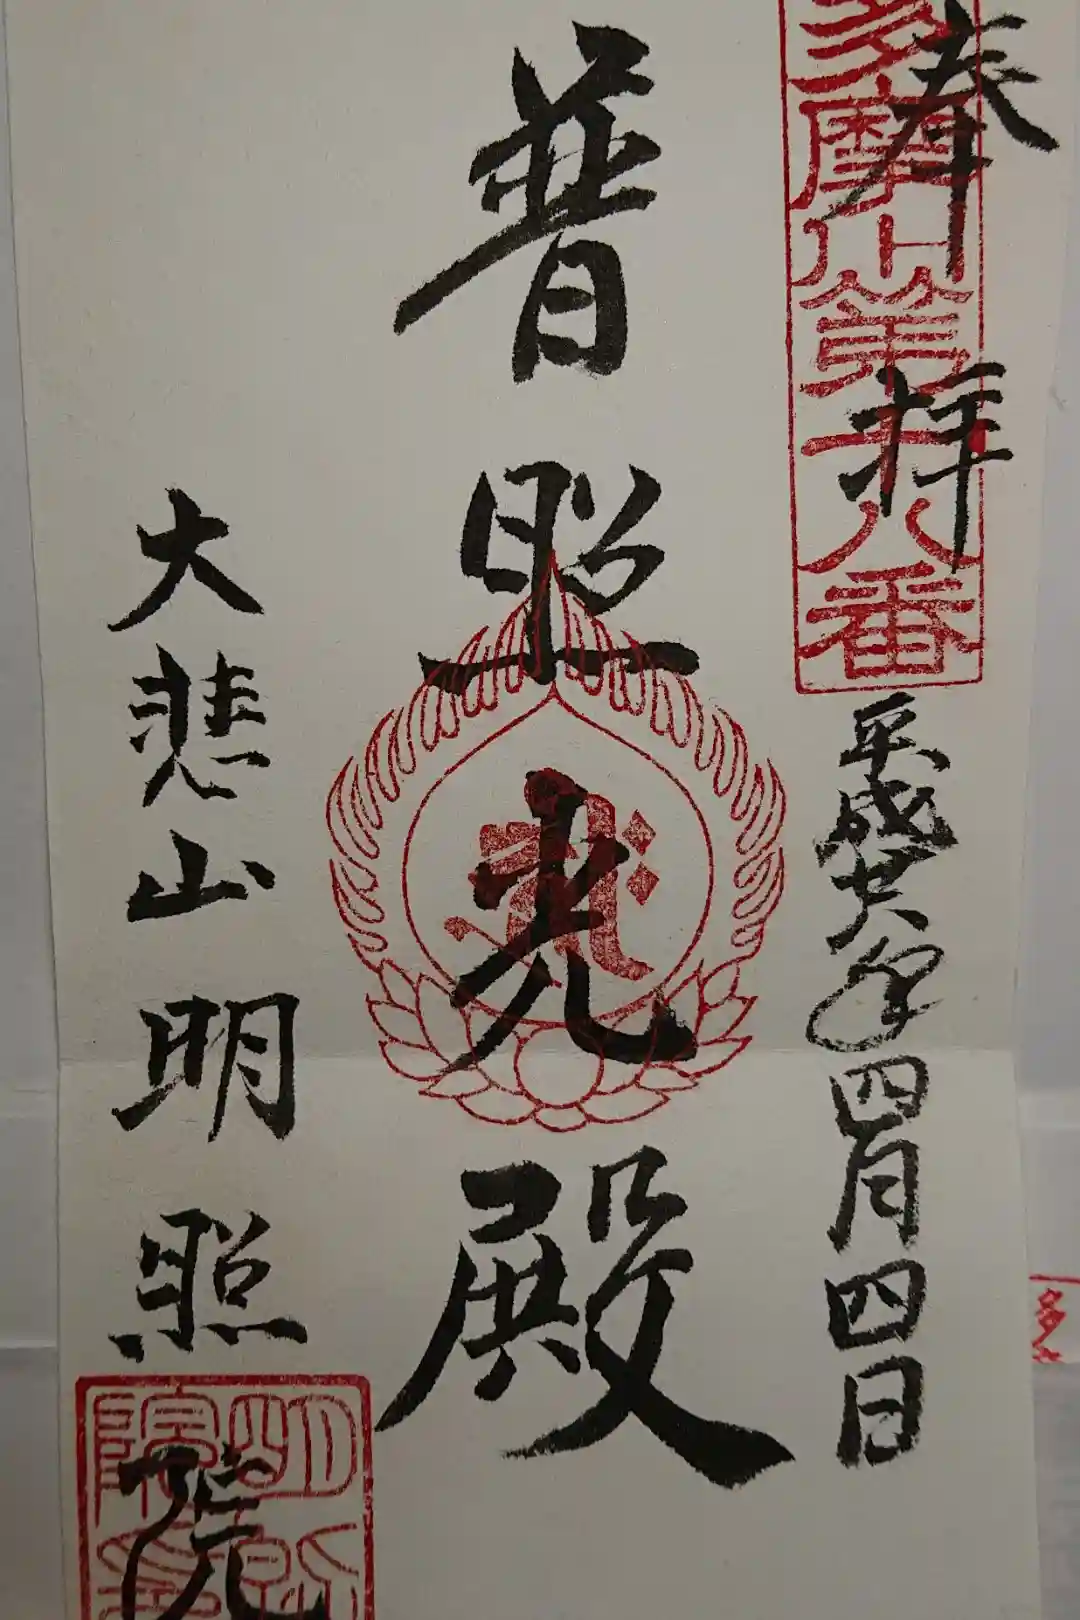 奉拝
多摩川第十八番
平成廿六年四月四日
普照光殿
大悲山明照院